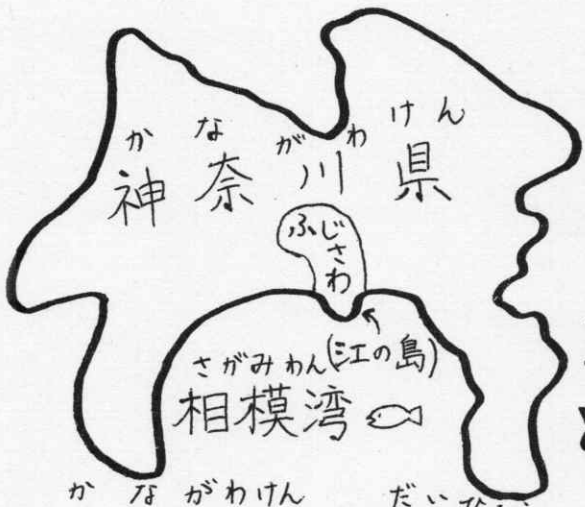 かながわけん
神奈川県
ふじさわ
(江の島)
さがみわん
相模湾
かながわけん